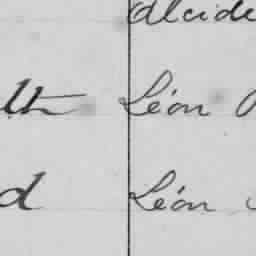 Alcide
lt Léon
d Léon